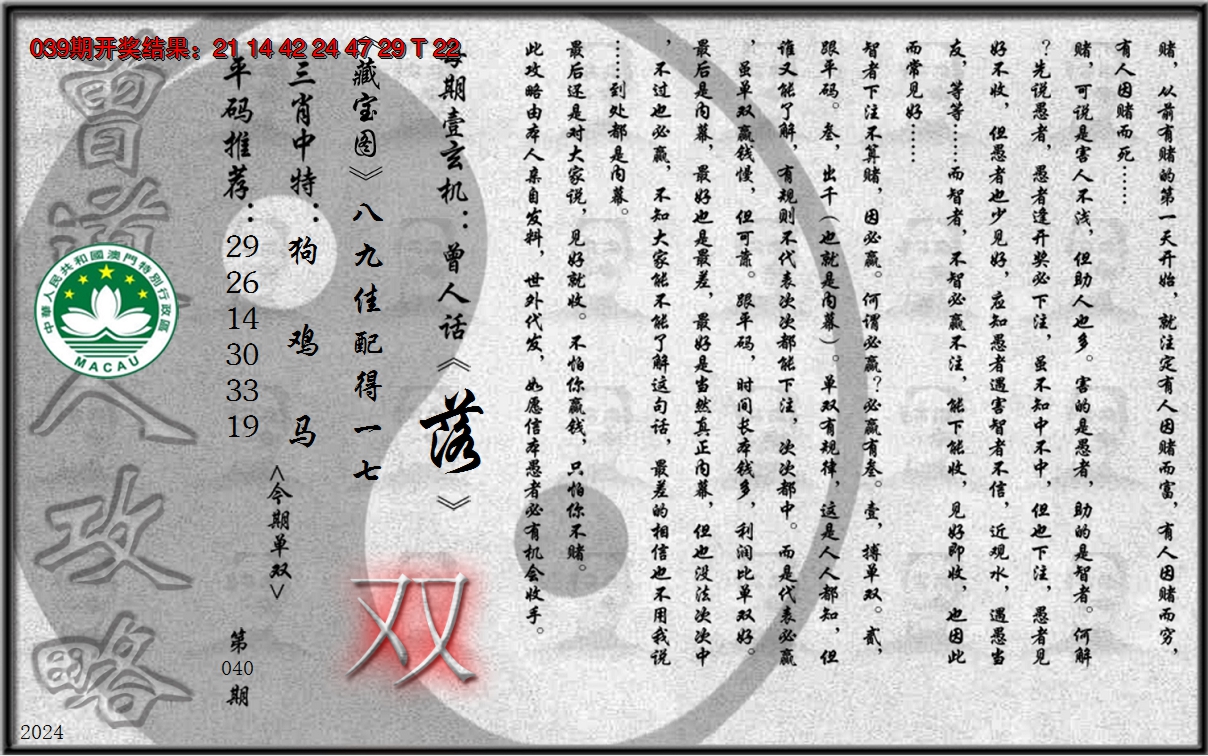 039期开奖结果：21 14 42 24 47 29 T 22
赌，从前有赌的第一天开始，就注定有人因赌而富，有人因赌而穷，
有人因赌而死……
赌，可说是害人不浅，但助人也多。害的是愚者，助的是智者。何解
？先说愚者，愚者逢开奖必下注，虽不知中不中，但也下注，愚者见
好不收，但愚者也少见好，应知愚者遇害智者不信，近观水，遇愚当
友，等等……而智者，不智必赢不注，能下能收，见好即收，也因此
而常见好……
智者下注不算赌，因必赢。何谓必赢？必赢有叁。壹，搏单双。贰，
跟平码。叁，出千（也就是内幕）。单双有规律，这是人人都知，但
谁又能了解，有规则不代表次次都能下注，次次都中。而是代表必赢
，虽单双赢钱慢，但可靠。跟平码，时间长本钱多，利润比单双好。
最后是内幕，最好也是最差，最好是当然真正内幕，但也没法次次中
，不过也必赢，不知大家能不能了解这句话，最差的相信也不用我说
……到处都是内幕。
最后还是对大家说，见好就收。不怕你赢钱，只怕你不赌。
此攻略由本人亲自发料，世外代发，如愿信本愚者必有机会收手。
每期壹玄机：曾人话《落》
《藏宝图》八九佳配得一七
双
三肖中特：狗 鸡 马
<今期单双>
平码推荐：29 26 14 30 33 19
第040期
曾道人攻略
中華人民共和國澳門特別行政區
MACAU
2024